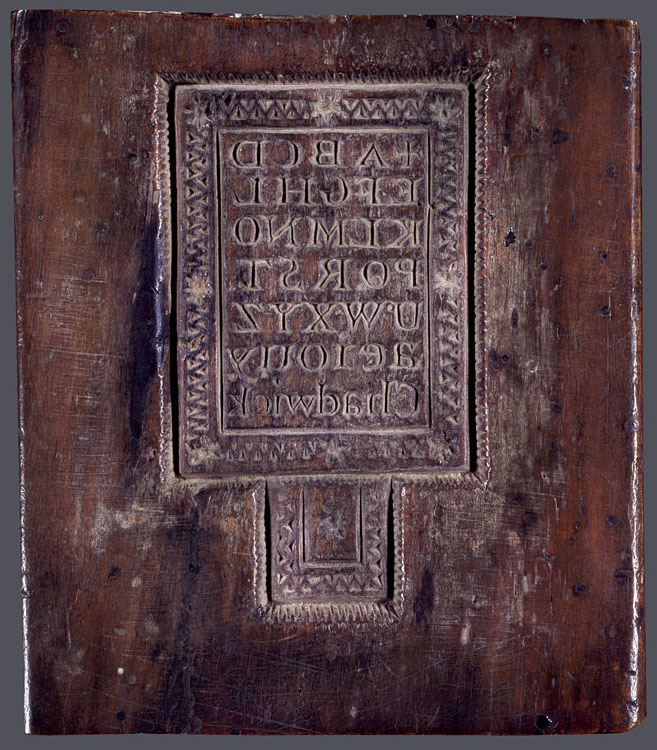 +ABCD
EFGHI
KLMNO
PQRST
UWXYZ
aeiouy
Chadwick